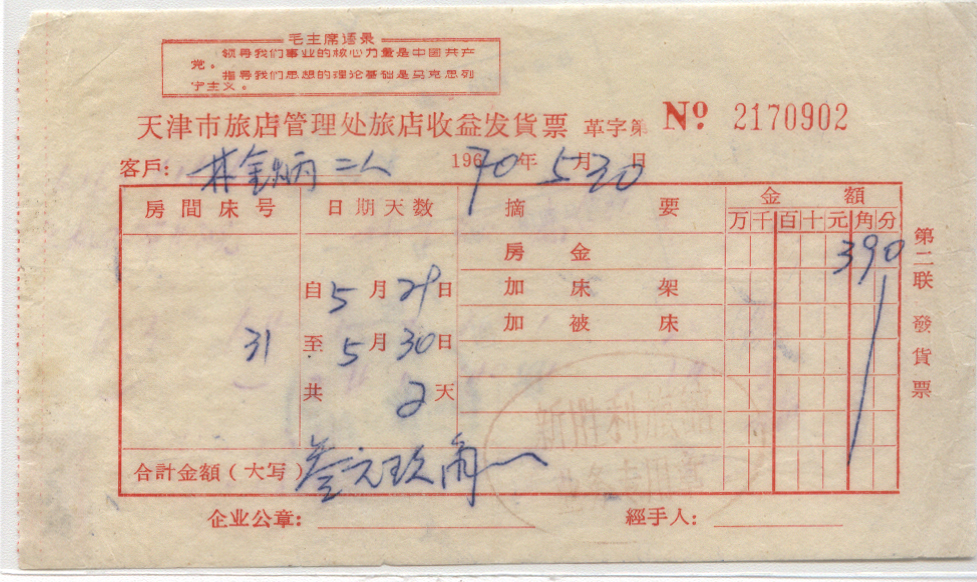 毛主席语录
领导我们事业的核心力量是中国共产
党。
指导我们思想的理论基础是马克思列
宁主义。
天津市旅店管理处旅店收益发货票 革字第 № 2170902
客戶: 林金炳 二人 196 70年 5月30日
房間床号 日期天数 摘要 金額
万千百十元角分
房金 390
自5月29日 加床架
加被床
31 至5月30日
共2天
新胜利旅館
业务专用章
合計金額(大写) 叁元玖角
企业公章: 經手人:
第二联 發貨票